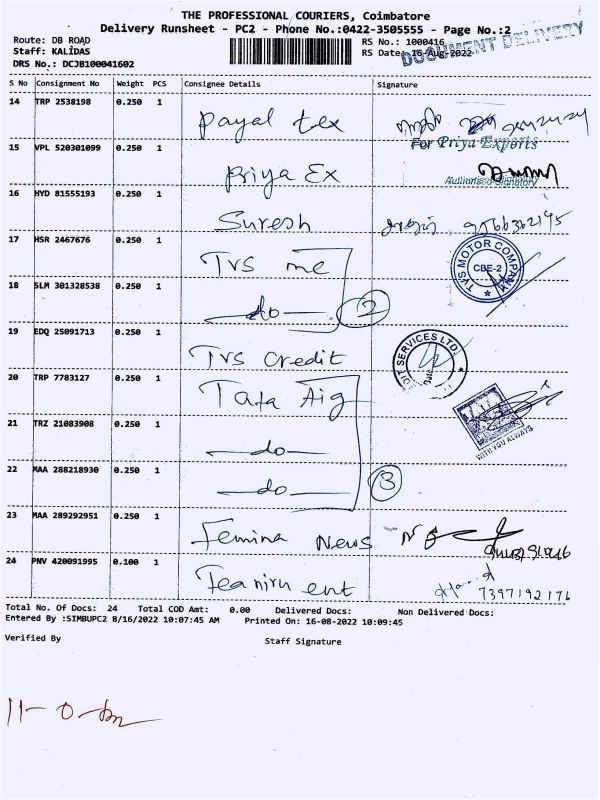 THE PROFESSIONAL COURIERS, Coimbatore
Delivery Runsheet - PC2 - Phone No.:0422-3505555 - Page No.:2
Route: DB ROAD
Staff: KALIDAS
DRS No.: DCJB100041602
RS No.: 1000416
RS Date: 16-Aug-2022
DOCUMENT DELIVERY
S No Consignment No Weight PCS Consignee Details Signature
14 TRP 2538198 0.250 1 Payal tex
For Priya Exports
15 VPL 520301099 0.250 1 Priya Ex
Authorised Signatory
16 HYD 81555193 0.250 1 Suresh 9566362195
17 HSR 2467676 0.250 1 TVS me
TVS MOTOR COMPANY
CBE-2
18 SLM 301328538 0.250 1 do 2
19 EDQ 25091713 0.250 1 TVS Credit
DIT SERVICES LTD.
Date
20 TRP 7783127 0.250 1 Tata Aig
WITH YOU ALWAYS
21 TRZ 21083908 0.250 1 do
22 MAA 288218930 0.250 1 do 3
23 MAA 289292951 0.250 1 Femina News
24 PNV 420091995 0.100 1 ent
7397192176
Total No. Of Docs: 24 Total COD Amt: 0.00 Delivered Docs: Non Delivered Docs:
Entered By :SIMBUPC2 8/16/2022 10:07:45 AM Printed On: 16-08-2022 10:09:45
Verified By Staff Signature